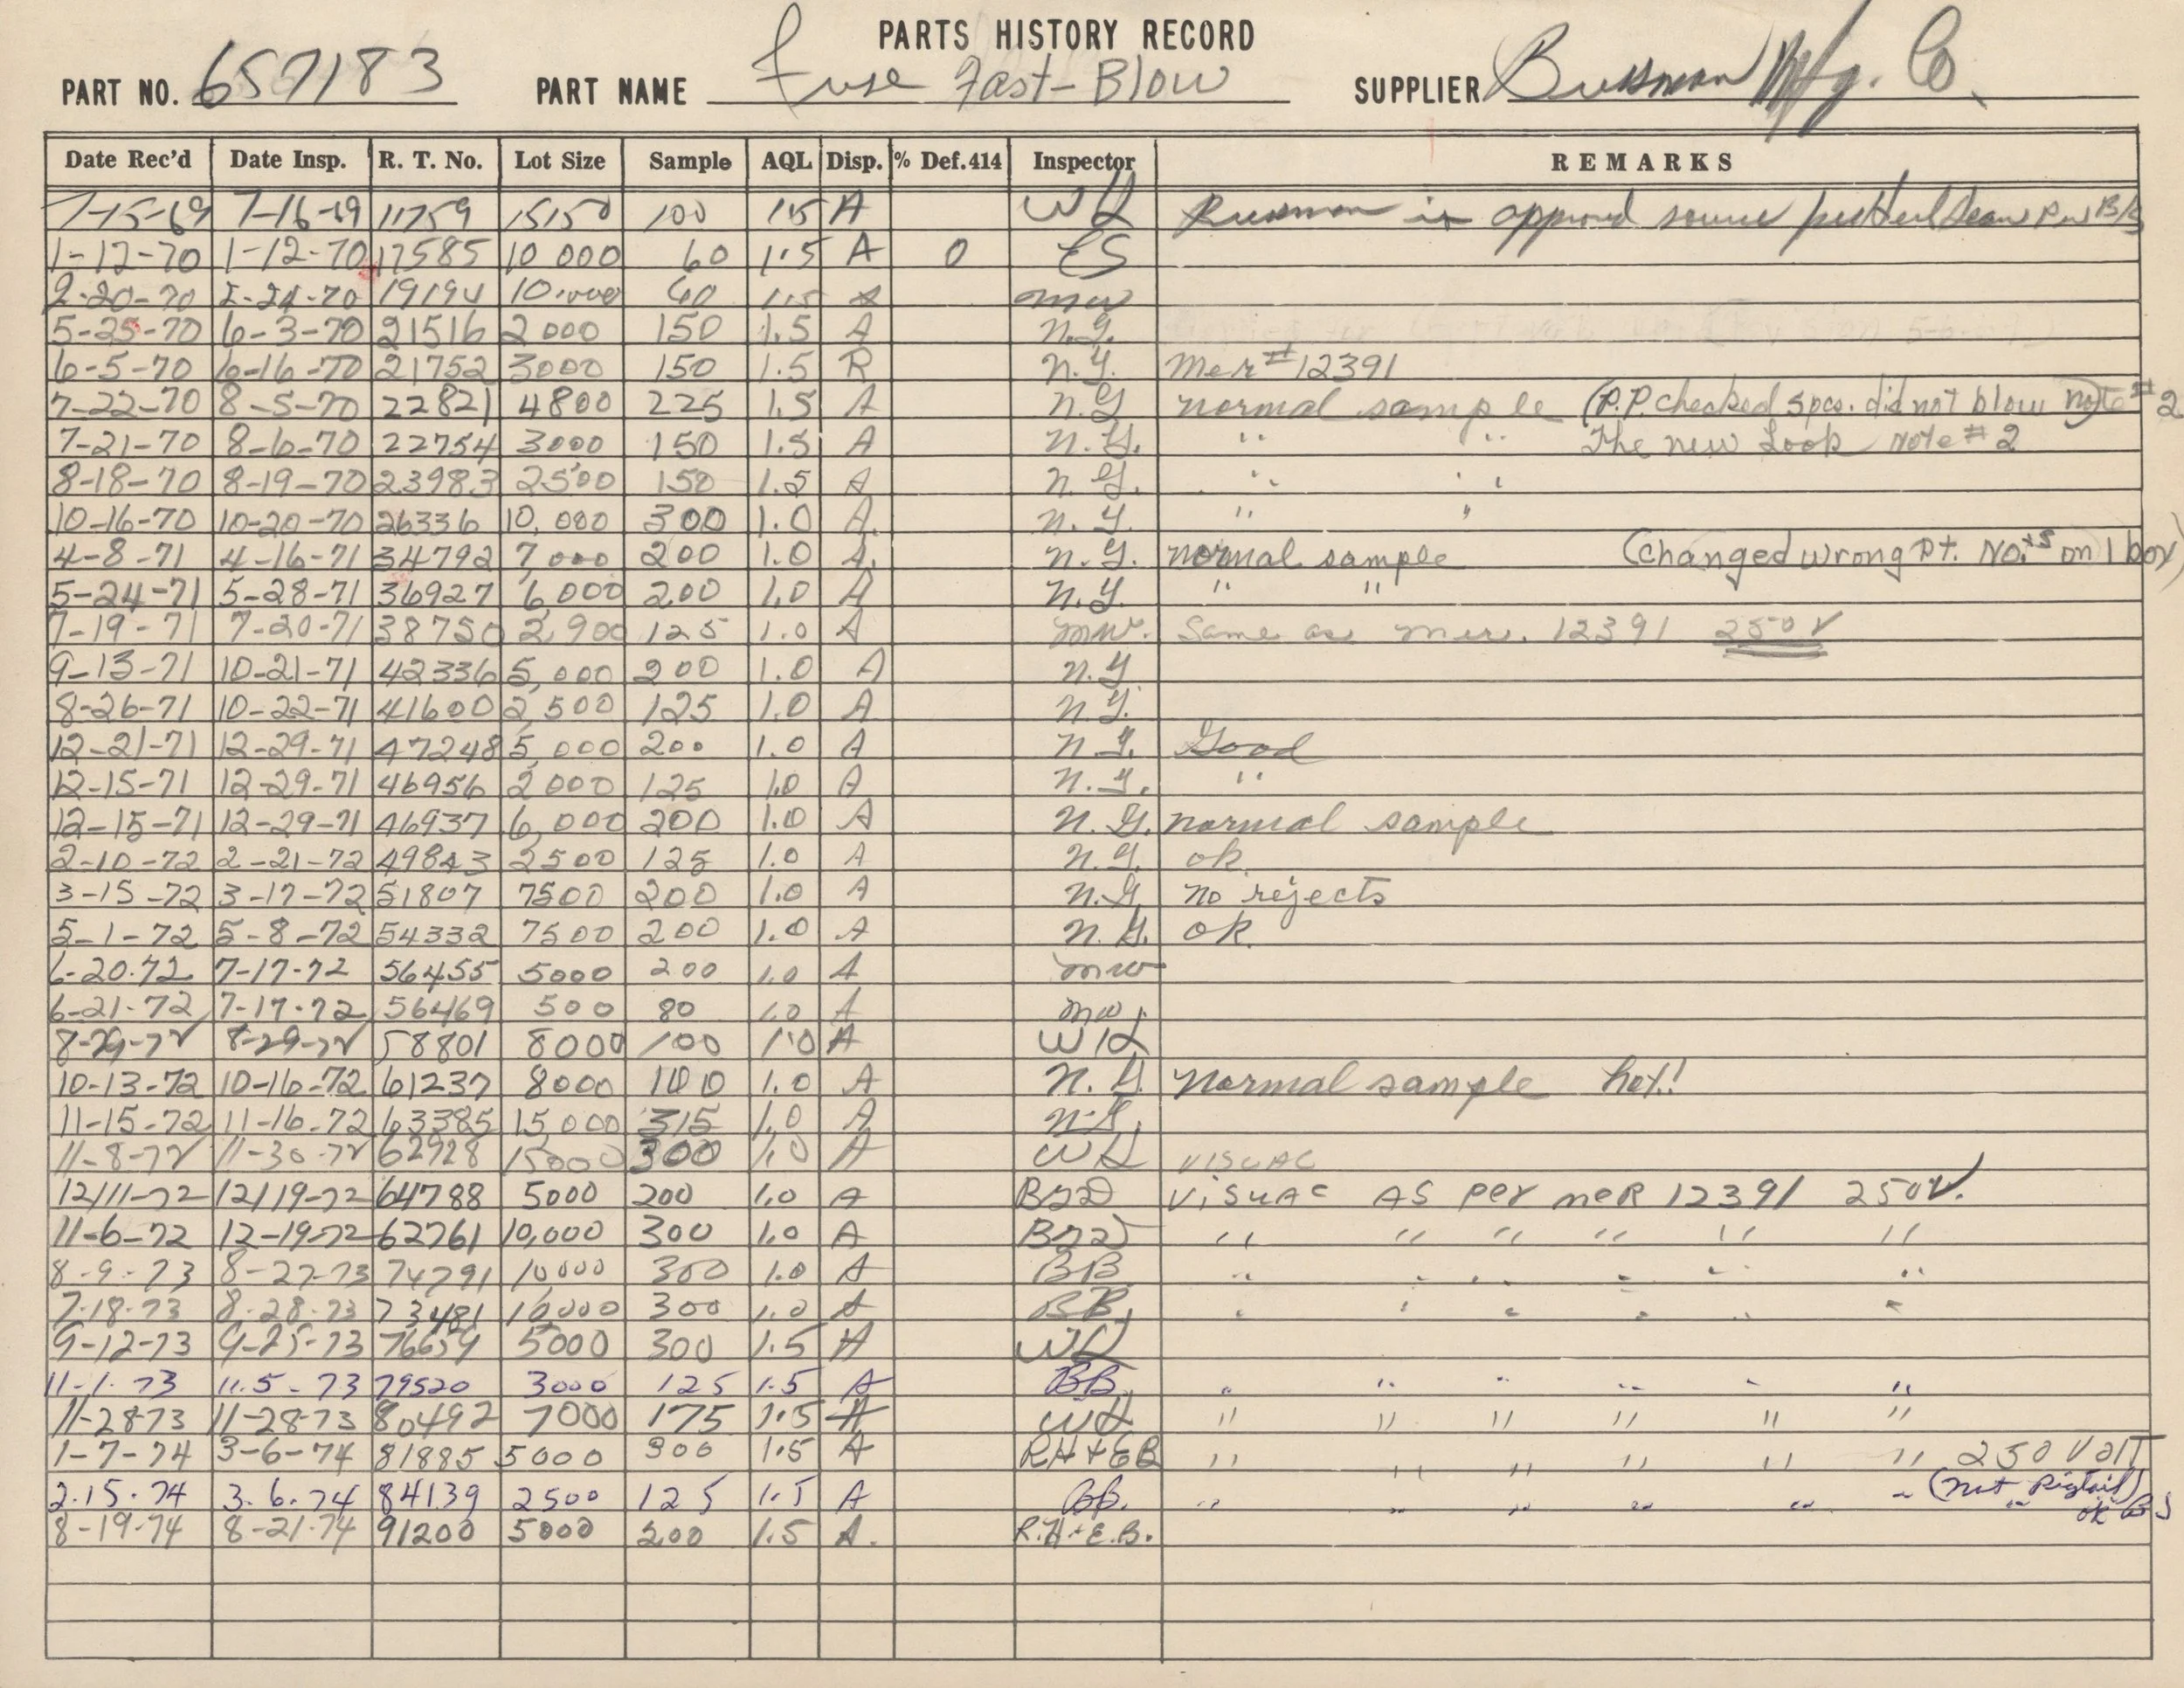 PARTS HISTORY RECORD
PART NO. 657183 PART NAME Fuse Fast-Blow SUPPLIER Bussman Mfg. Co.
Date Rec'd Date Insp. R. T. No. Lot Size Sample AQL Disp. % Def.414 Inspector REMARKS
7-15-69 7-16-69 11759 15150 100 1.5 A WL Bussman is approved source per
1-12-70 1-12-70 17585 10 000 60 1.5 A 0 ES
2-20-70 2-24-70 19194 10,000 60 1.5 A mw
5-25-70 6-3-70 21516 2000 150 1.5 A n.G.
6-5-70 6-16-70 21752 3000 150 1.5 R n.G. Mer #12391
7-22-70 8-5-70 22821 4800 225 1.5 A n.G normal sample (P.P. checked 5 pcs. did not blow note #2
7-21-70 8-6-70 22754 3000 150 1.5 A n.G. " " The new Look note #2
8-18-70 8-19-70 23983 2500 150 1.5 A n.G. " "
10-16-70 10-20-70 26336 10,000 300 1.0 A. n.G. " "
4-8-71 4-16-71 34792 7,000 200 1.0 A. n.G. normal sample (changed wrong Pt. No.ts on 1 box)
5-24-71 5-28-71 36927 6,000 200 1.0 A n.G. " "
7-19-71 7-20-71 38750 2,900 125 1.0 A mw. Same as mer. 12391 250V
9-13-71 10-21-71 42336 5,000 200 1.0 A n.G
8-26-71 10-22-71 41600 2,500 125 1.0 A n.G.
12-21-71 12-29-71 47248 5,000 200 1.0 A n.G. Good
12-15-71 12-29-71 46956 2000 125 1.0 A n.G. "
12-15-71 12-29-71 46937 6,000 200 1.0 A n.G. normal sample
2-10-72 2-21-72 49843 2500 125 1.0 A n.G. ok
3-15-72 3-17-72 51807 7500 200 1.0 A n.G. no rejects
5-1-72 5-8-72 54332 7500 200 1.0 A n.G. ok.
6-20-72 7-17-72 56455 5000 200 1.0 A mw
6-21-72 7-17-72 56469 500 80 1.0 A mw.
8-29-72 8-29-72 58801 8000 100 1.0 A WL
10-13-72 10-16-72 61237 8000 100 1.0 A n.G normal sample hot!
11-15-72 11-16-72 63385 15,000 315 1.0 A n.G.
11-8-72 11-30-72 62928 15000 300 1.0 A WL VISUAL
12/11-72 12/19-72 64788 5000 200 1.0 A VISUAL AS Per meR 12391 250V.
11-6-72 12-19-72 62761 10,000 300 1.0 A " " " " " "
8-9-73 8-27-73 74791 10000 300 1.0 A BB " " " " " "
7-18-73 8-28-73 73481 10000 300 1.0 A BB. " " " " " "
9-12-73 9-25-73 76659 5000 300 1.5 A WL
11-1-73 11-5-73 79520 3000 125 1.5 A BB. " " " " " "
11-28-73 11-28-73 80492 7000 175 1.5 A WL " " " " " "
1-7-74 3-6-74 81885 5000 300 1.5 A RH+EB " " " " " " 250 VOLT
2-15-74 3-6-74 84139 2500 125 1.5 A BB. " " " " " " (not Pigtail)
8-19-74 8-21-74 91200 5000 200 1.5 A. R.H+E.B. ok